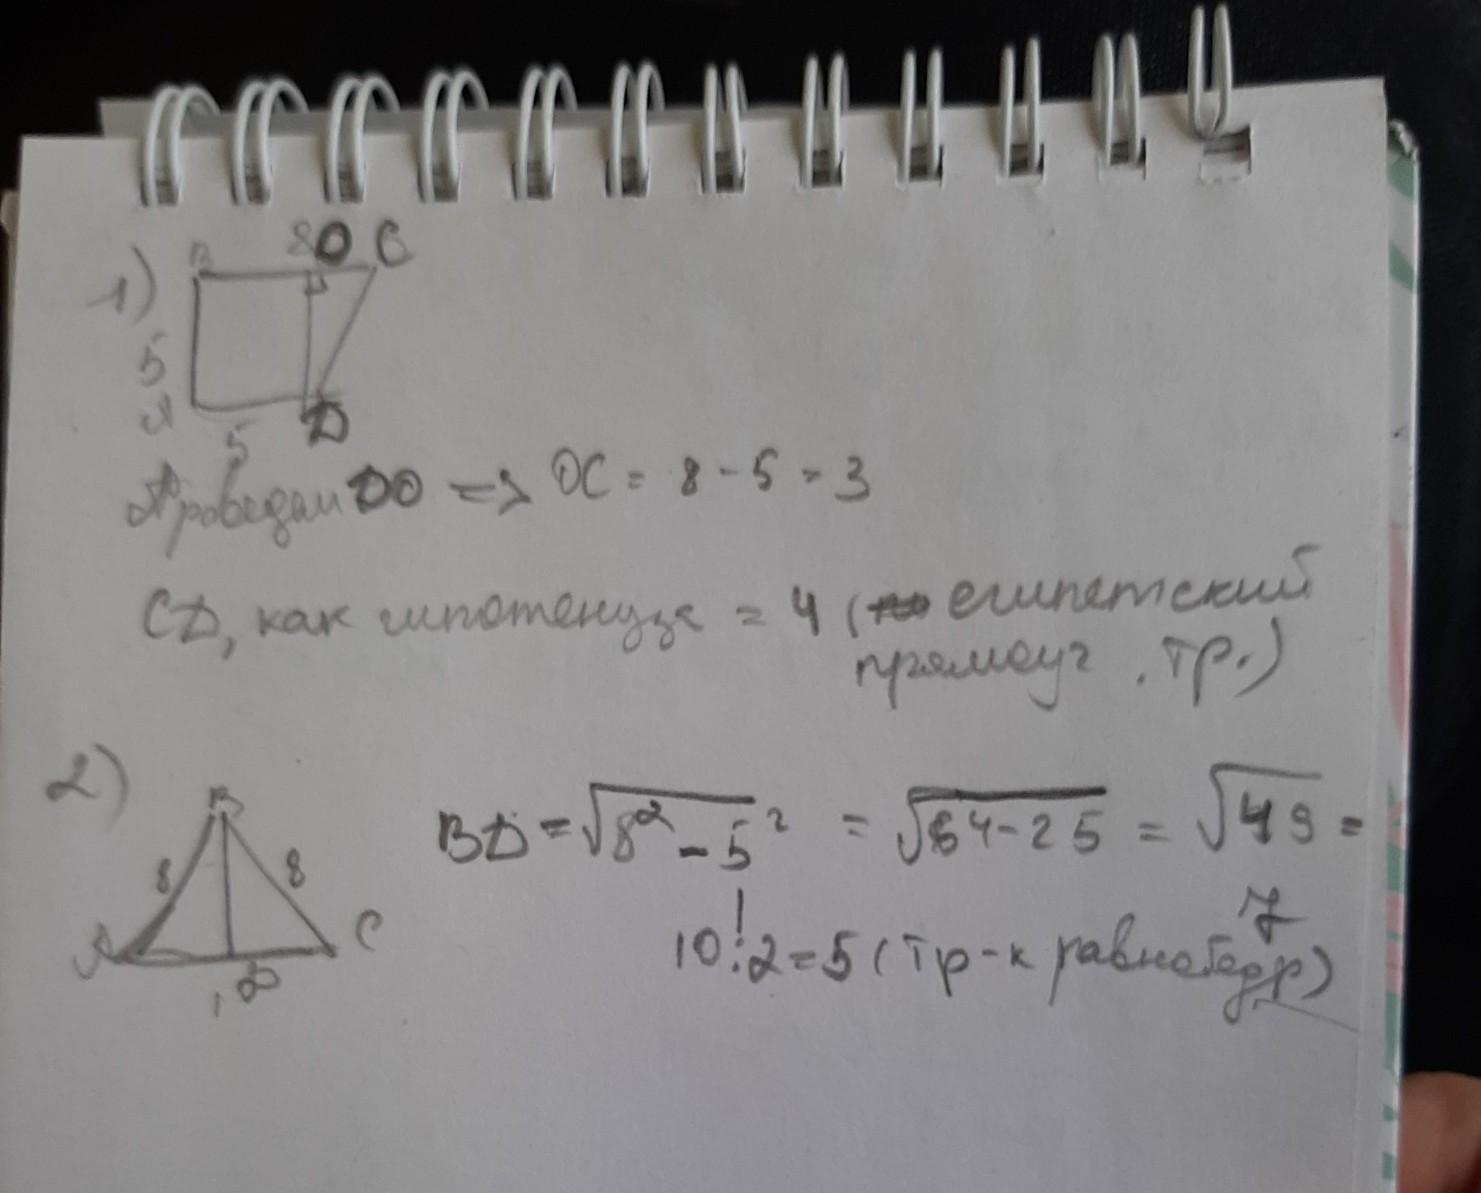 1)
B 8 O C
5
A 5 D
Проведем DO => OC = 8 - 5 = 3
CD, как гипотенуза = 4 (египетский
прямоуг. тр.)
2)
B
8 8
A D C
BD = √8² - 5² = √64-25 = √49 =
7
10:2=5 (тр-к равнобедр)